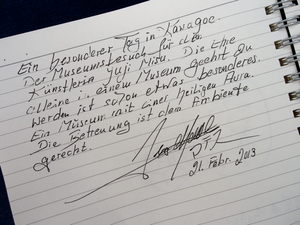 Ein besonderer Tag in Kawagoe.
Der Museumsbesuch für die
Künstlerin Yuji Misu. Die Ehe
alleine in einem Museum geehrt zu
werden ist schon etwas besonderes.
Ein Museum mit einer heiligen Aura.
Die Betreuung ist dem Ambiente
gerecht.
21. Febr. 2013